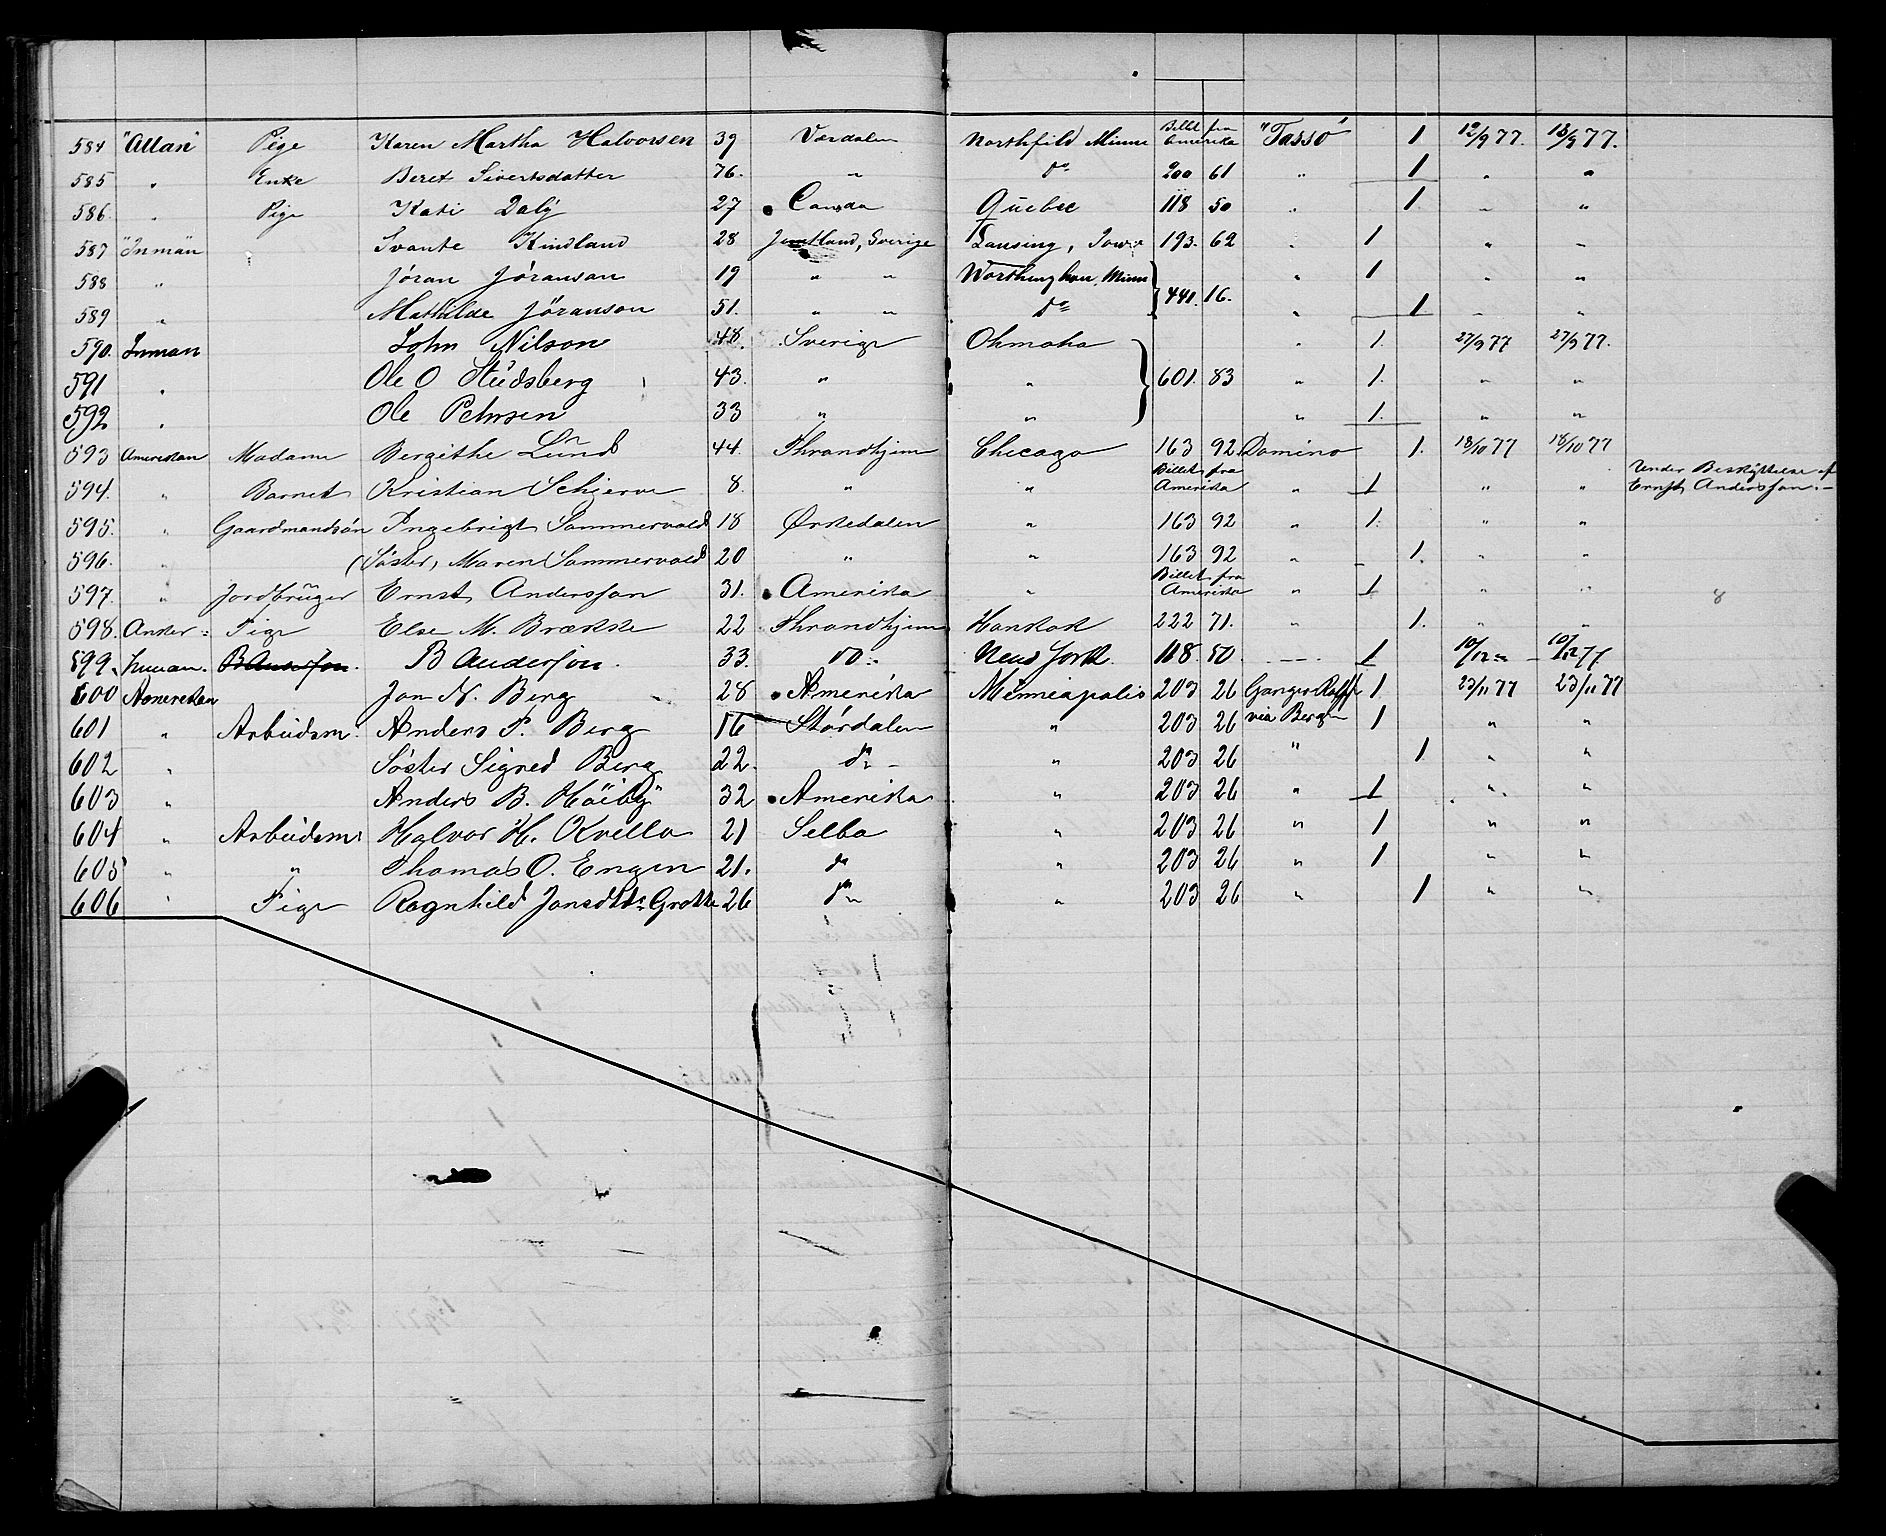 584 "Allan" Pige Karen Martha Halvorsen 39 Værdalen Northfild Minne Billet fra Amerika "Tasso" 1 12/9 77. 13/9 77.
585 " Enke Beret Sivertsdatter 76. " do 200 61 " 1 " "
586. " Pige Kati Daly 27 Canada Quebec 118 50 " 1. " "
587 "Inman Svante Kindland 28 Jemtland, Sverige Lansing, Iowa 193. 62 " 1 " "
588 " Jöran Jöranson 19 " " Worthinghon, Minn } 441. 16. " 1 " "
589 " Mathilde Jöranson 51. " " do " 1 " "
590. Inman John Nilson 48. Sverige Ohmaha " 1. 27/9 77 27/9 77.
591 " Ole O Studsberg 43. " " } 601. 83 " 1. " "
592 " Ole Petersen 33 " " " 1. " "
593 Amerikan Madam Bergithe Lund 44. Throndhjem Chicago 163 92 Domino 1. 18/10 77 18/10 77
594. " Barnet Kristian Schjerve 8. " " Billet fra Amerika " 1 " " Under Beskyttelse af Ernst Andersson.-
595. " Gaardmandsøn Ingebrigt Sommervold 18 Ørkedalen " 163 92 " 1. " "
596. " (Søster, Maren Sommervold 20 " " 163 92 " 1. " "
597. " Jordbruger Ernst Andersson 31. Amerika " Billet fra Amerika " 1 " " 8
598. Anker Pige Else M. Brække 22 Throndhjem 222 71. " 1. " "
599. Inman. B Anderson. B Anderson. 33. do New York. 118. 50. 1 10/12 " 10/12 77.
600 Amerikan Jon N. Berg 28 Amerika Minneapolis 203 26 Ganger Rolf 1. 23/11 77 23/11 77
601 " Arbeidsm. Anders P. Berg 16 Stördalen " 203 26 via Bergen 1 " "
602 " Søster Sigred Berg 22. do " 203 26 " 1 " "
603 " Anders B. Höiby 32 Amerika " 203 26 " 1 " "
604 " Arbeidsm. Halvor H. Kvello 21 Selbo " 203 26 " 1 " "
605 " " Thomas O. Engen 21. do " 203 26 " 1 " "
606 " Pige Ragnhild Jonsdtr Grøtte 26 do " 203 26 " 1 " "